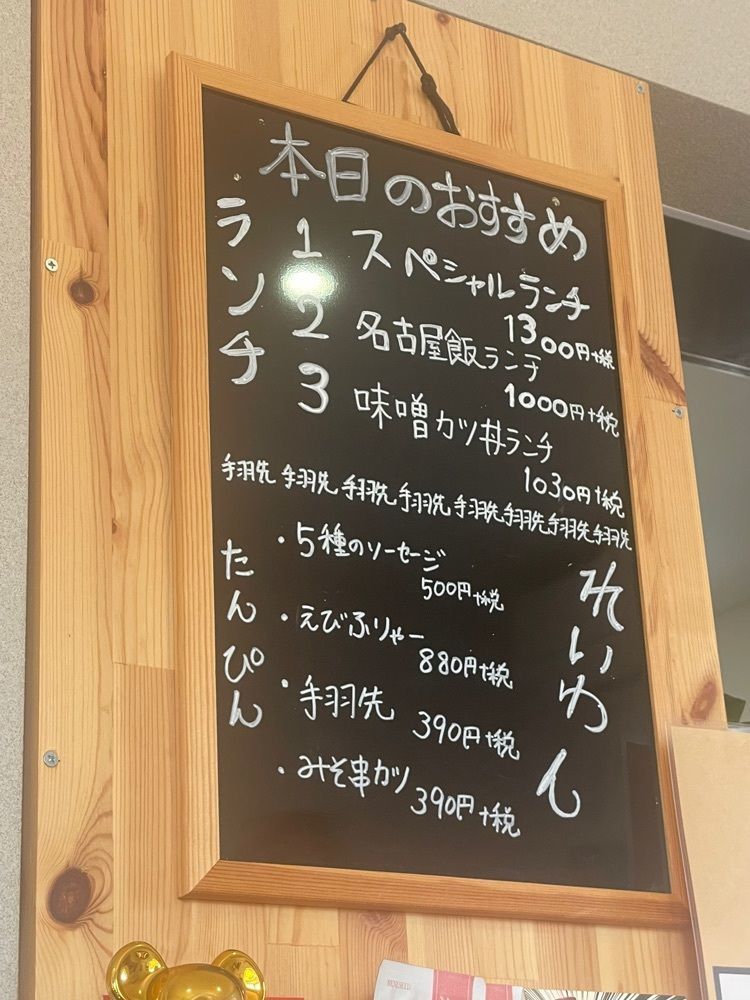 本日のおすすめ
ランチ
1 スペシャルランチ
1300円+税
2 名古屋飯ランチ
1000円+税
3 味噌カツ丼ランチ
1030円+税
手羽先 手羽先 手羽先 手羽先 手羽先 手羽先 手羽先 手羽先
たんぴん
・5種のソーセージ
500円+税
・えびふりゃー
880円+税
・手羽先 390円+税
・みそ串カツ
390円+税
れいわん